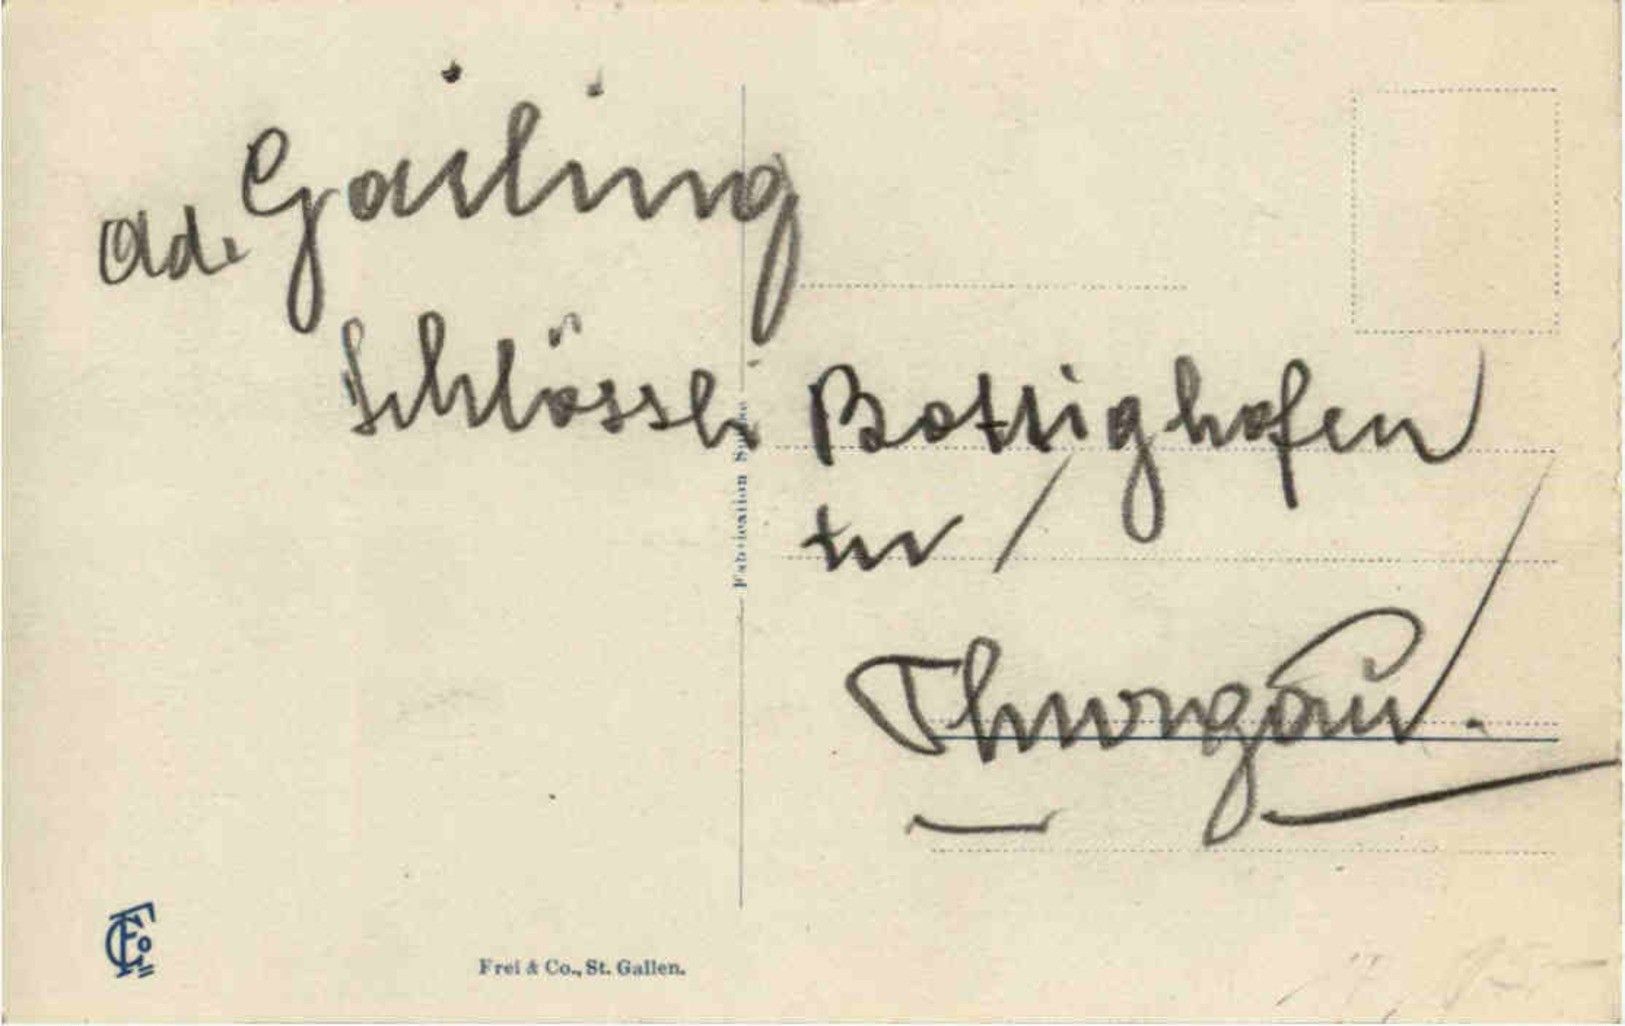 Ad. Gailing
Schlössli Bottighofen
Thurgau.
Fabrication Suisse
Frei & Co., St. Gallen.